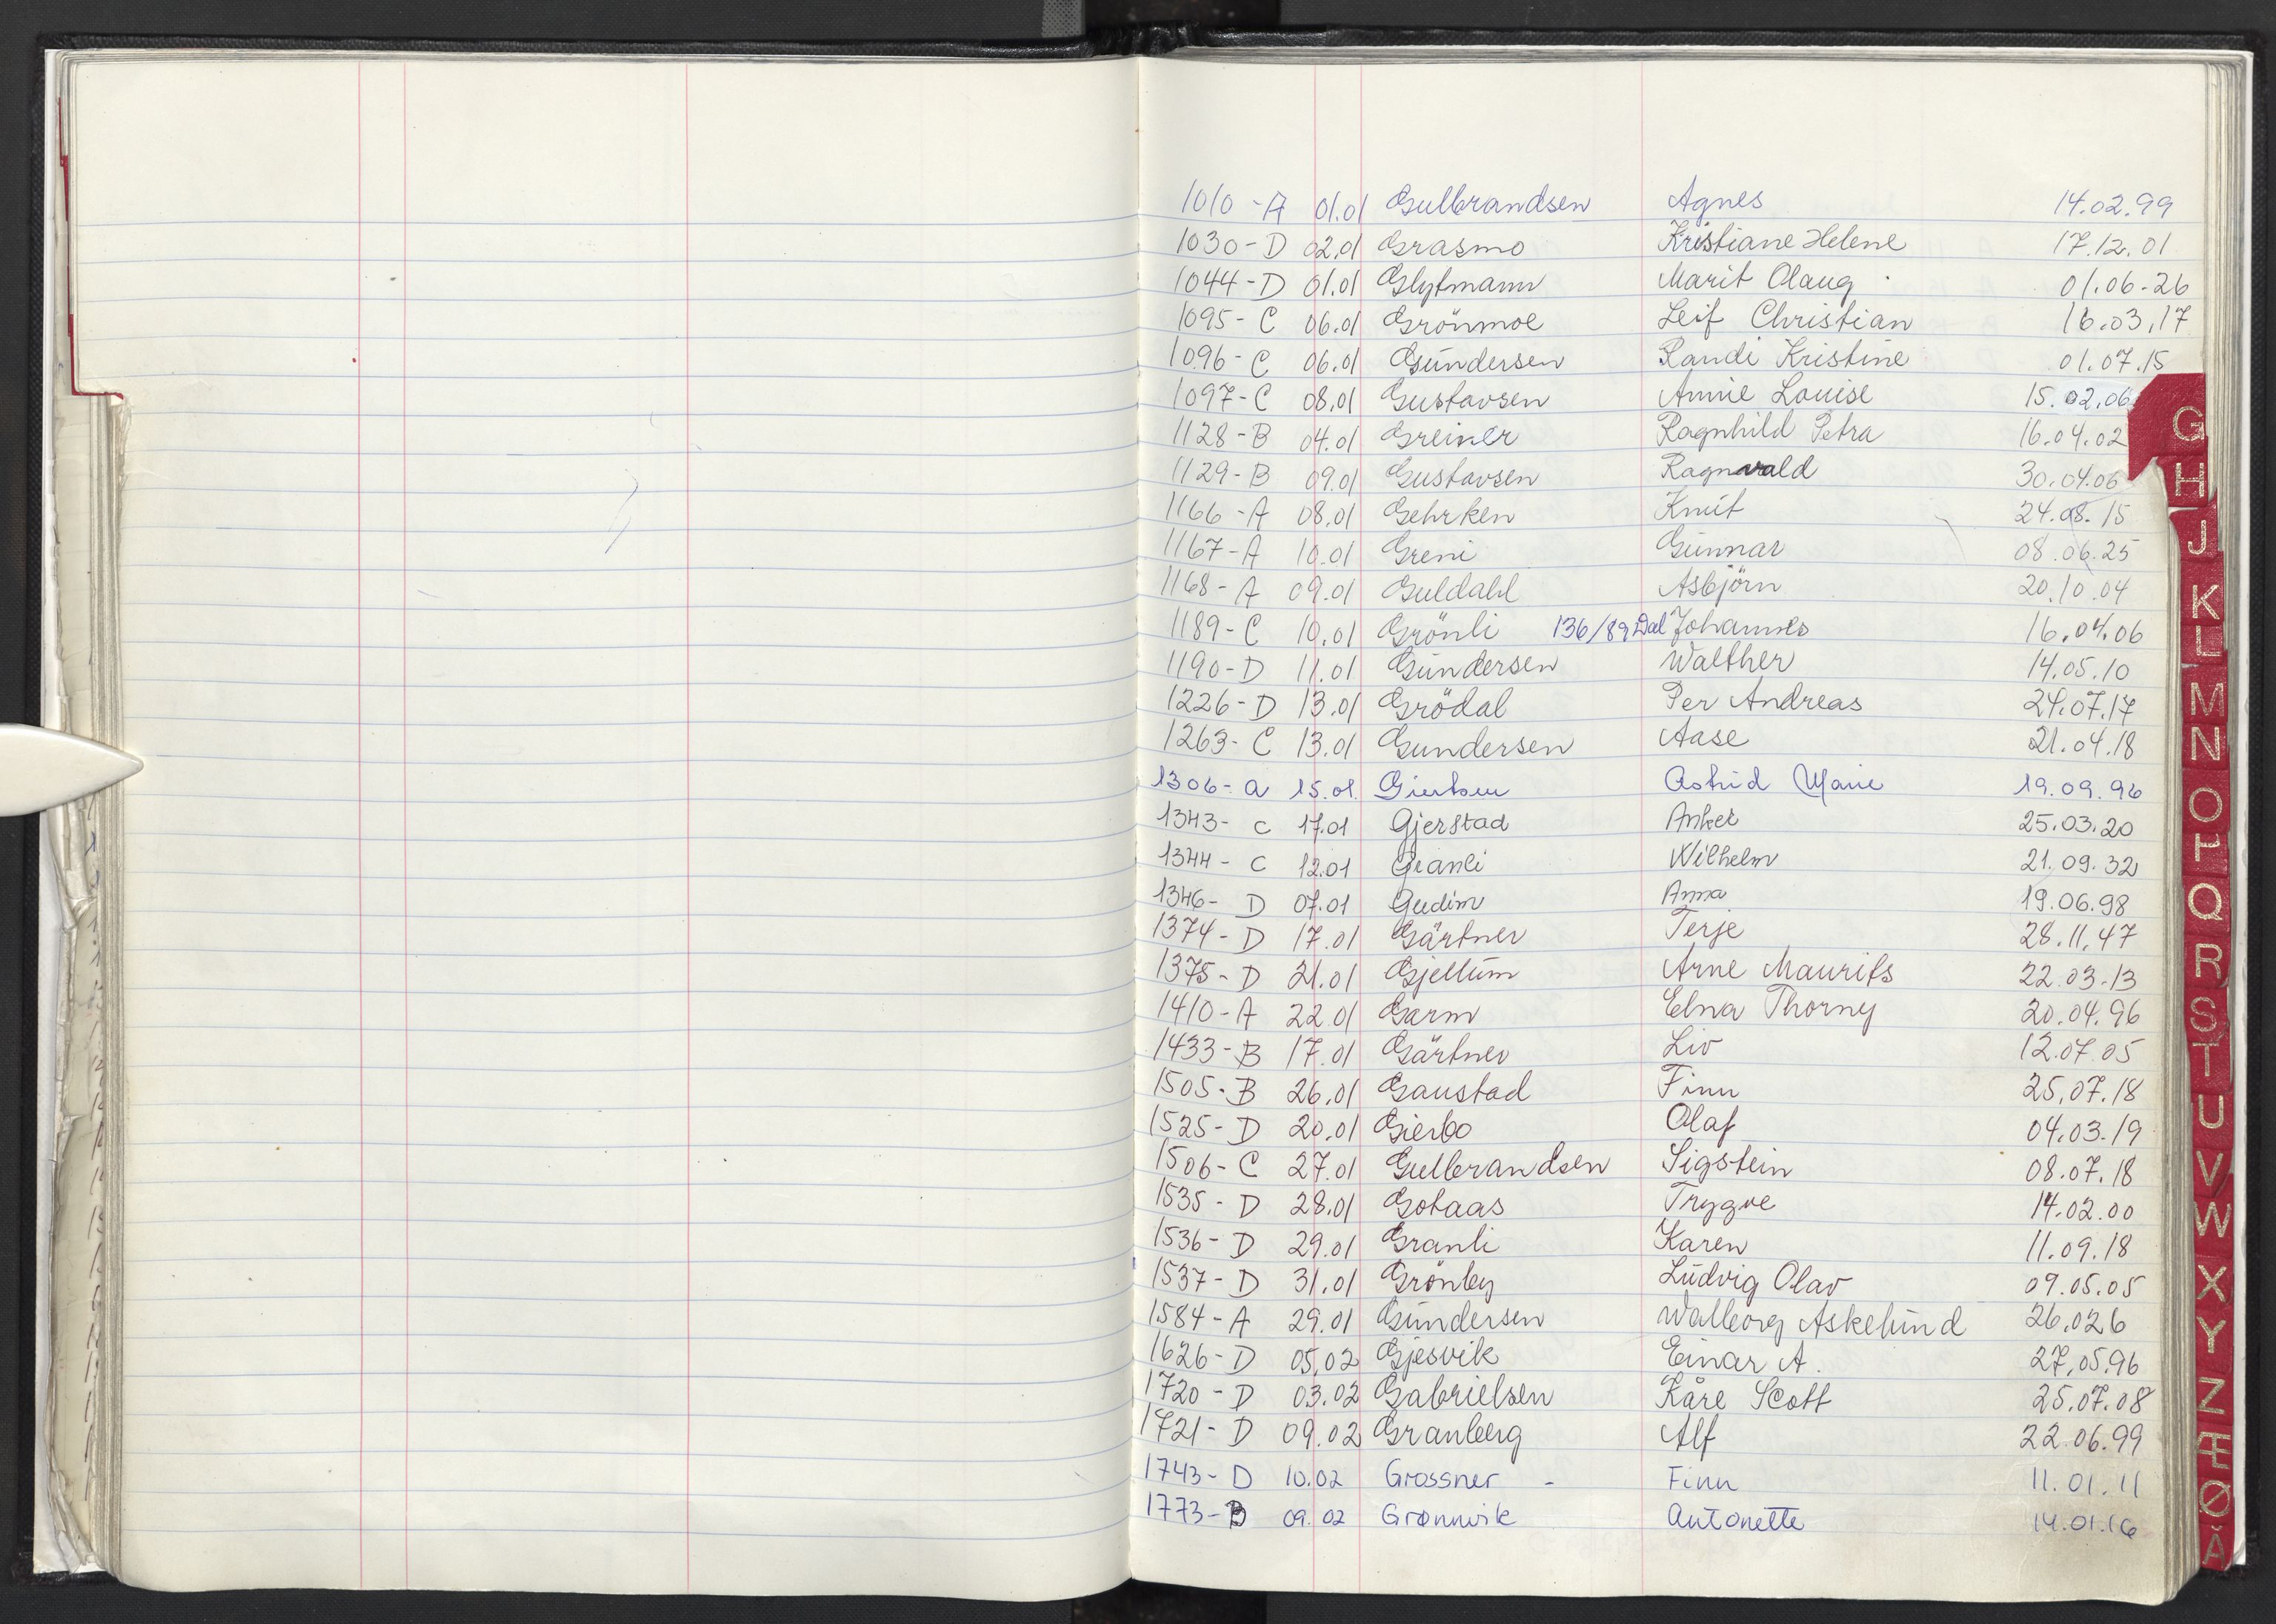 1010-A 01.01 Gulbrandsen Agnes 14.02.99
1030-D 02.01 Grasmo Kristiane Helene 17.12.01
1044-D 01.01 Glytmann Marit Olaug 01.06-26
1095-C 06.01 Grönmoe Leif Christian 16.03.17
1096-C 06.01 Gundersen Randi Kristine 01.07.15
1097-C 08.01 Gustavsen Annie Louise 15.02.06
1128-B 04.01 Greiner Ragnhild Petra 16.04.02
1129-B 09.01 Gustavsen Ragnvald 30.04.06
1166-A 08.01 Gehrken Knut 24.08.15
1167-A 10.01 Greni Gunnar 08.06.25
1168-A 09.01 Guldahl Asbjörn 20.10.04
1189-C 10.01 Grönli 136/89 Dal Johannes 16.04.06
1190-D 11.01 Gundersen Walther 14.05.10
1226-D 13.01 Grödal Per Andreas 24.07.17
1263-C 13.01 Gundersen Aase 21.04.18
1306-a 15.01 Giertsen Astrid Marie 19.09.96
1343-c 17.01 Gjerstad Anker 25.03.20
1344-C 12.01 Granli Wilhelm 21.09.32
1346-D 07.01 Gudim Anna 19.06.98
1374-D 17.01 Gärtner Terje 28.11.47
1375-D 21.01 Gjellum Arne Maurits 22.03-13
1410-A 22.01 Garm Elna Thorny 20.04.96
1433-B 17.01 Gärtner Liv 12.07.05
1505-B 26.01 Gaustad Finn 25.07.18
1525-D 20.01 Gierbo Olaf 04.03.19
1506-C 27.01 Gulbrandsen Sigstein 08.07.18
1535-D 28.01 Gotaas Trygve 14.02.00
1536-D 29.01 Granli Karen 11.09.18
1537-D 31.01 Grönby Ludvig Olav 09.05.05
1584-A 29.01 Gundersen Walborg Askelund 26.026
1626-D 05.02 Gjesvik Einar A. 27.05.96
1720-D 03.02 Gabrielsen Kåre Scott 25.07.08
1721-D 09.02 Granberg Alf 22.06.99
1743-D 10.02 Grossner - Finn 11.01.11
1773-B 09.02 Grønnvik Antonette 14.01.16
G
H
J
K
L
M
N
O
P
Q
R
S
T
U
V
W
X
Y
Z
Æ
Ø
Å